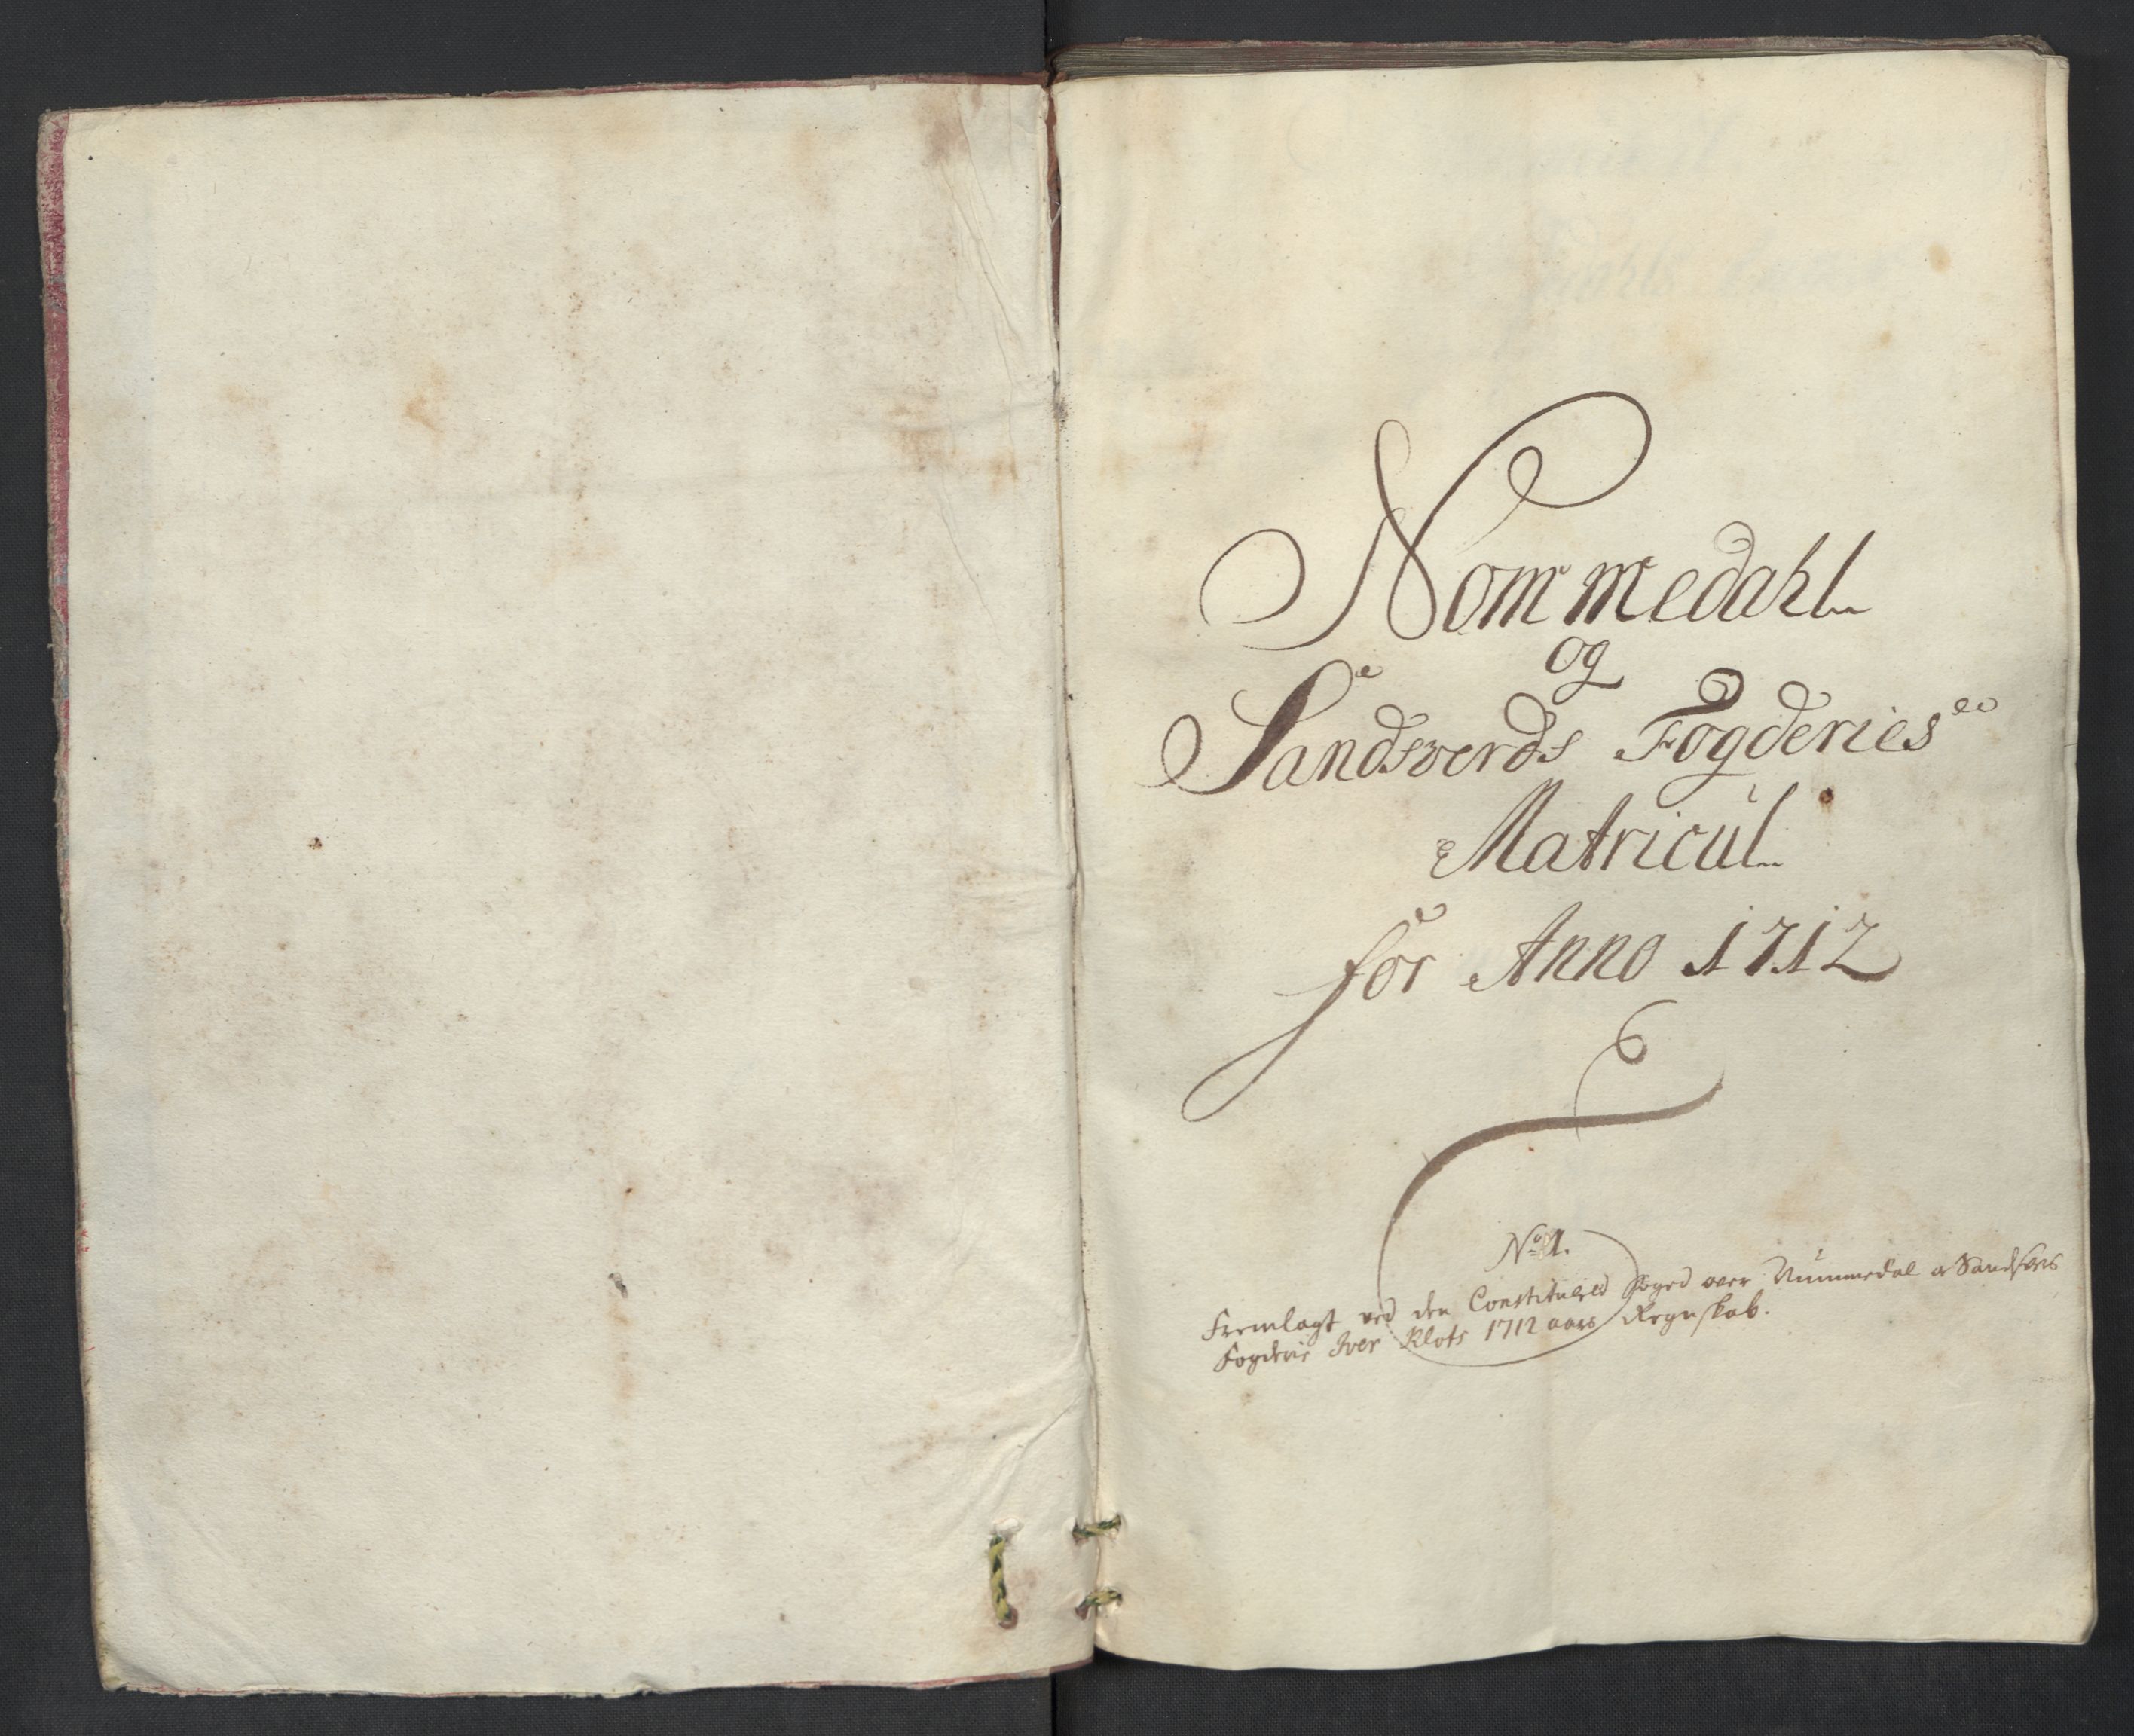 Nommedahl
og
Sandsverds Fogderies
Matricul
for Anno 1712
No 1.
Fremlagt ved den Constituered Foged over Nummedal &
Fogderie Iver Klots 1712 aars Regnskab.